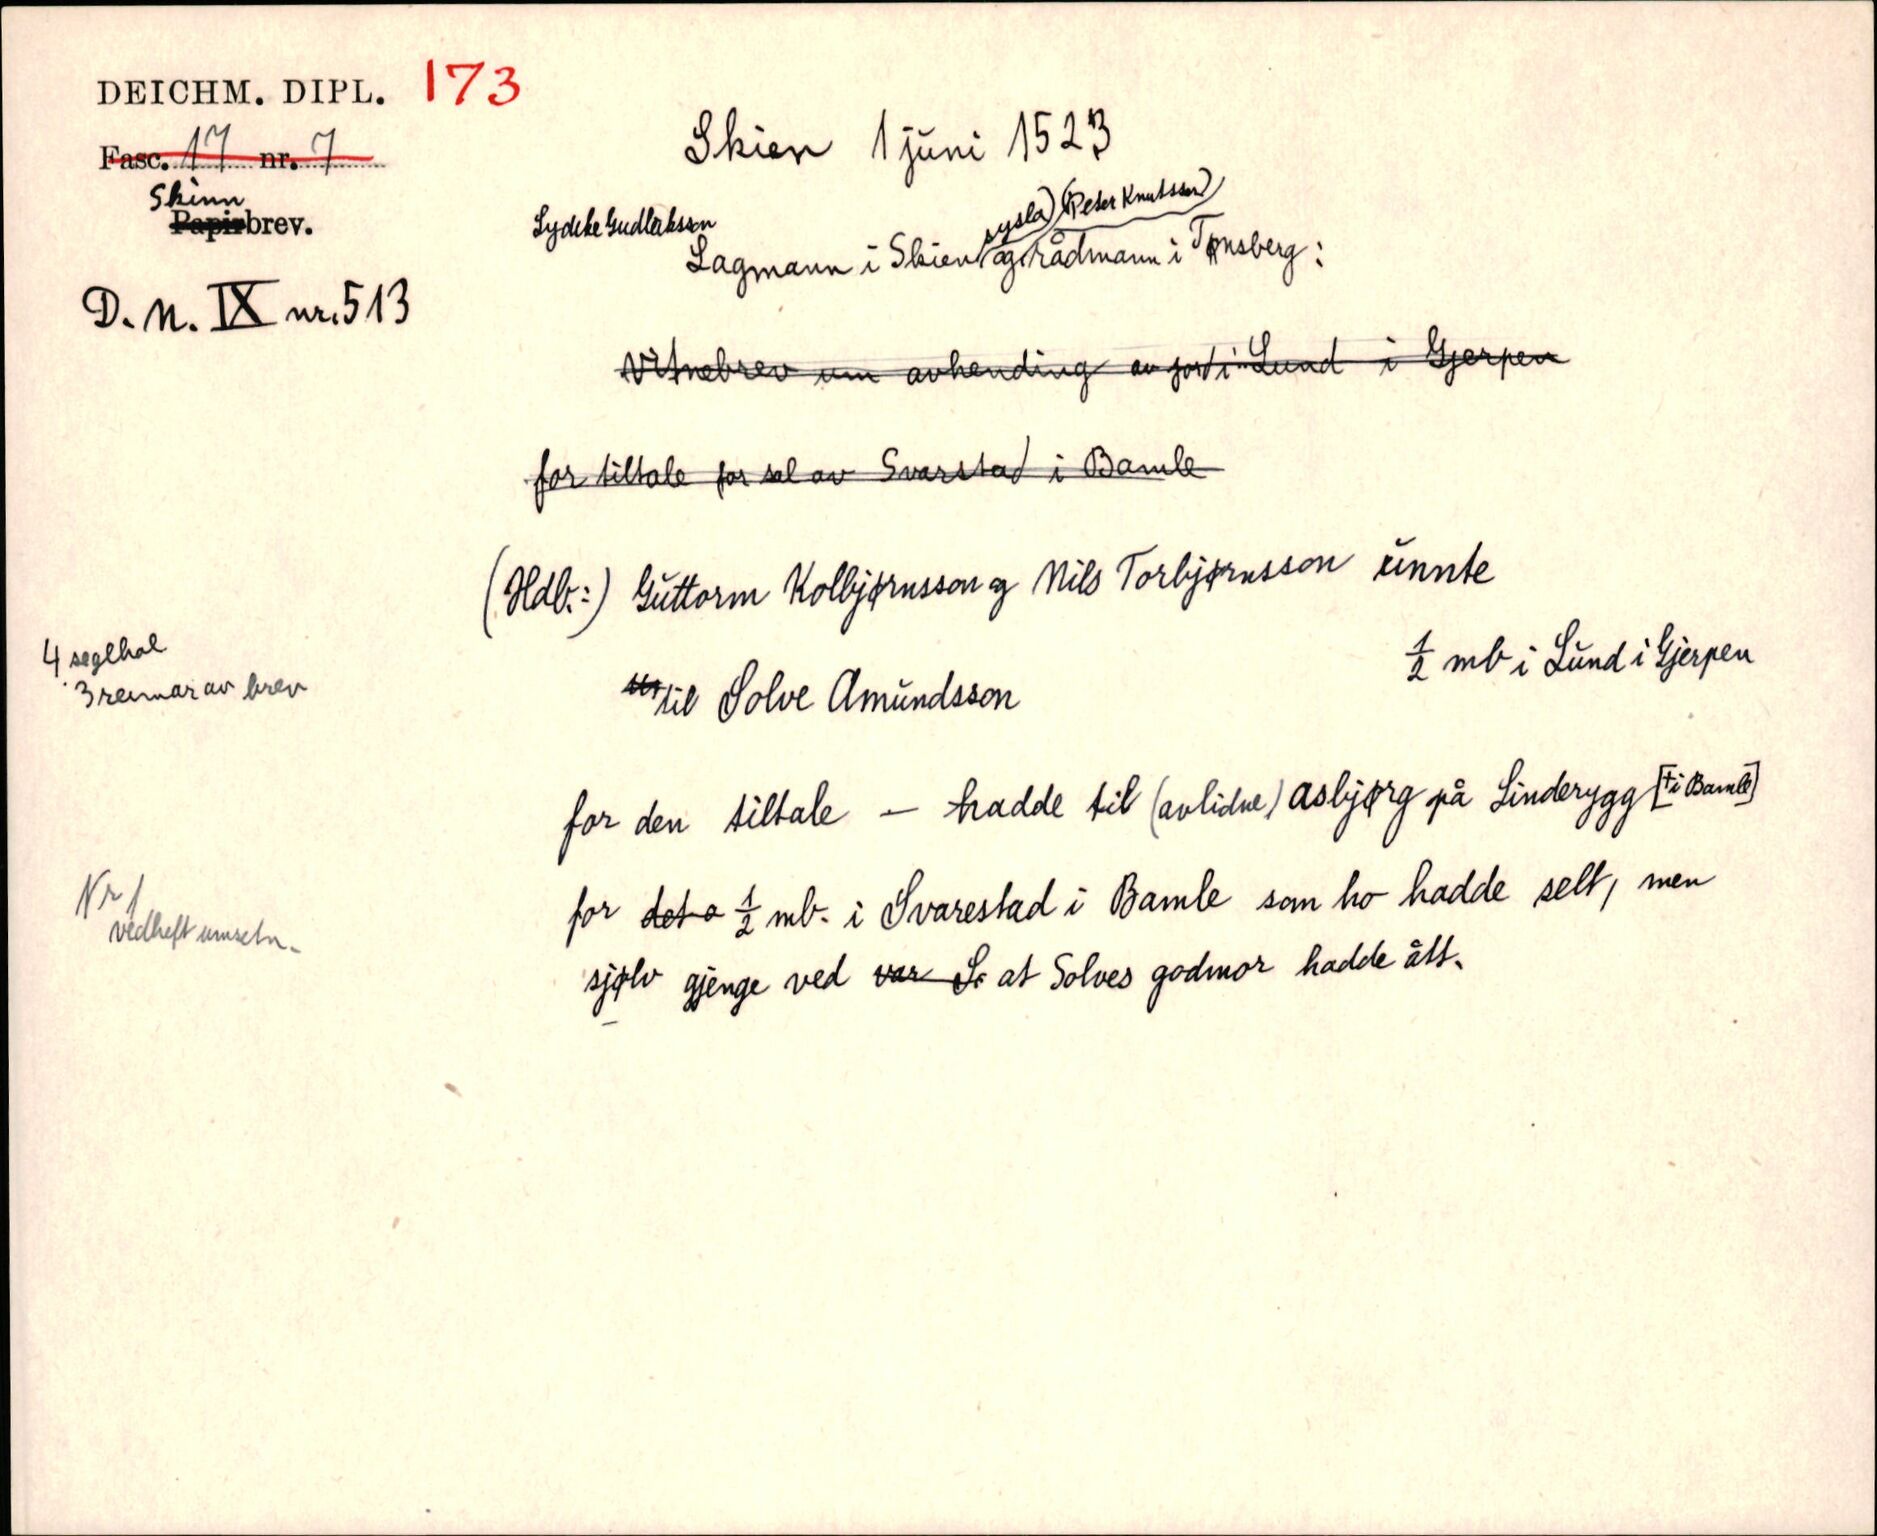 DEICHM. DIPL. 173
Fasc. 17 nr. 7
Skinn
Papirbrev.
D. N. IX nr. 513
Skien 1 juni 1523
sysla) (Peter Knutsson)
Lydeke Gudleiksson
Lagmann i Skien og rådmann i Tønsberg:
Vitnebrev um avhending av jord i Lund i Gjerpen
for tiltale for sal av Svarstad i Bamle
(Hdb.:) Guttorm Kolbjørnsson og Nils Torbjørnsson unnte
½ mb i Lund i Gjerpen
til Solve Amundsson
4 seglhol
3 reimar av brev
for den tiltale — hadde til (avlidne) Asbjørg på Linderygg [† i Bamle]
for det o ½ mb. i Svarestad i Bamle som ho hadde selt, men
sjølv gjenge ved var S. at Solves godmor hadde ått.
Nr 1
vedheft umsetn.